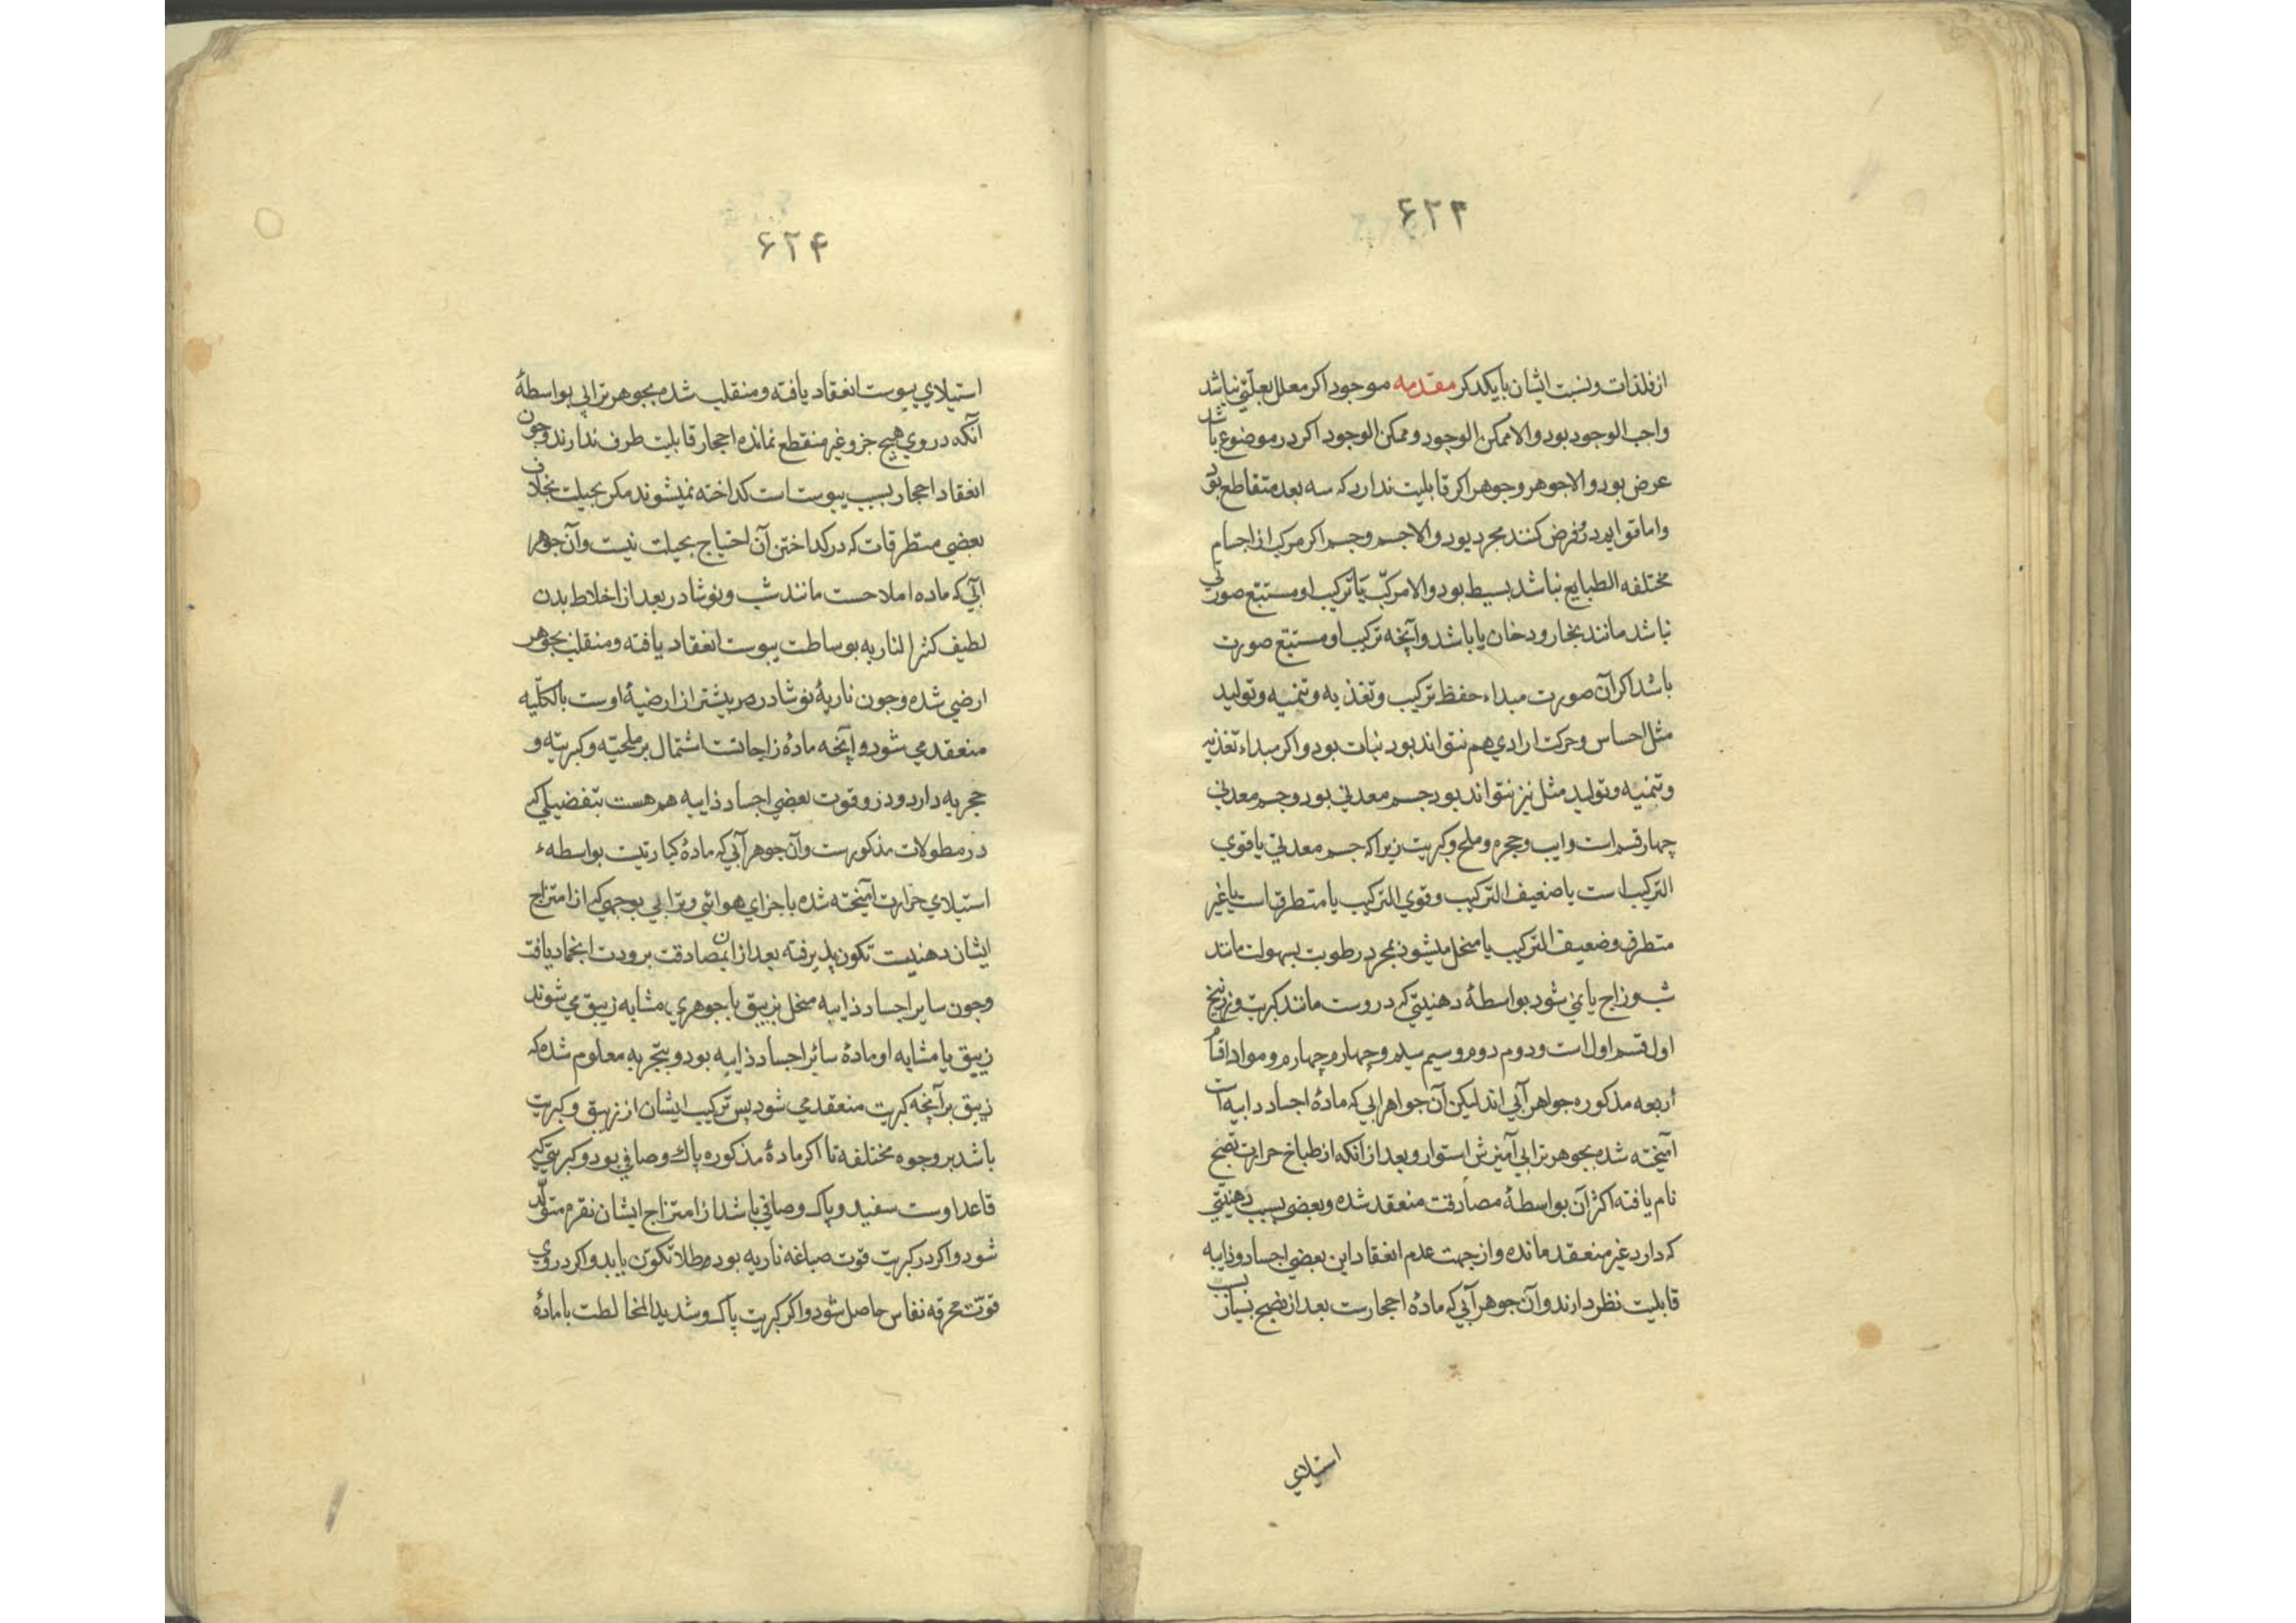 ۶۲۳
از فلذات و نسبت ایشان با یکدکر مقدمه موجود اکر معلل بعلتی نباشد
واجب الوجود بود والا ممکن الوجود و ممکن الوجود اکر در موضوع باشد
عرض بود والا جوهر و جوهر اکر قابلیت ندارد که سه بعد متقاطع بود
واما قوایم در فرض کنند مجرد بود والا جسم و جسم اکر مرکب از اجسام
مختلفه الطبایع نباشد بسیط بود والا مرکب یا ترکیب او مستتبع صورتی
نباشد مانند بخار و دخان یا باشد و آنچه ترکیب او مستتبع صورت
باشد اکر آن صورت مبداء حفظ ترکیب و تغذیه و تنمیه و تولید
مثل احساس و حرکت ارادی هم نتواند بود نبات بود و اکر مبداء تغذیه
و تنمیه و تولید مثل نیز نتواند بود جسم معدنی بود و جسم معدنی
چهار قسم است و ایب و حجر و ملح و کبریت زیرا که جسم معدنی یا قوی
الترکیب است یا ضعیف الترکیب و قوی الترکیب یا متطرقیاست یا غیر
متطرف و ضعیف الترکیب یا منحل میشود بمجرد رطوبت بسهولت مانند
شب و زاج یا نمی شود بواسطهٔ دهنیتی که در وست مانند کبریت و زرنیخ
اول قسم اول است و دوم دوم و سیم سیم و چهارم چهارم و مواد اقسام
اربعه مذکوره جواهر آبی اند لیکن آن جواهر آبی که مادهٔ اجساد دابیه است
آمیخته شده بجوهر ترابی آمیزش استوار و بعد از آنکه از طباخ حرارت نضج
تام یافته اکثر آن بواسطهٔ مصادفت منعقد شده و بعضی بسبب دهنیتی
که دارد غیر منعقد مانده و از جهت عدم انعقاد این بعضی اجساد ذایبه
قابلیت نظر دارند و آن جوهر آبی که مادهٔ احجارست بعد از نضج بسیار بسبب
استیلای
۶۲۴
استیلای یبوست انعقاد یافته و منقلب شده بجوهر ترابی بواسطهٔ
آنکه در وی هیچ جزو غیر منقطع نمانده احجار قابلیت طرف ندارند و چون
انعقاد احجار بسبب یبوست است کداخته نمیشوند مکر بحیلت بخلاف
بعضی متطرقات که در کداختن آن احتیاج بحیلت نیست و آن جوهر
آبی که ماده املاحست مانند شب و نوشادر بعد از اخلاط بدن
لطیف کثر النار یه بوساطت یبوست انعقاد یافته و منقلب بجوهر
ارضی شده و چون ناریهٔ نوشادر بیشتر از ارضیهٔ اوست بالکلّیه
منعقد می شود و آنچه مادهٔ زاجاتست اشتمال بر ملحیّته و کبریته و
حجریه دارد و درو قوت بعضی اجساد ذایبه هم هست بتفضیلی که
در مطولات مذکورست و آن جوهر آبی که مادهٔ کباریتست بواسطهء
استیلای حرارت آمیخته شده با جزای هوائی و ترابی بوجهی که از امتزاج
ایشان دهنیت تکون پذیرفته بعد از آن بمصادقت برودت انجماد یافت
و چون سایر اجساد ذایبه منحل بزیبق یا جوهری مشابه زیبق می شوند
زیبق یا مشابه او مادهٔ سائر اجساد ذایبه بود و بتجربه معلوم شده که
زیبق برآنچه کبریت منعقد می شود پس ترکیب ایشان از زیبق و کبریت
باشد بر وجوه مختلفه تا اکر مادهٔ مذکوره پاک و صافی بود و کبریتی که
قاعد اوست سفید و پاک و صافی باشد از امتزاج ایشان نقره متولّد
شود و اکر در کبریت قوت صباغه ناریه بود طلا تکوّن یابد و اکر در وی
قوّت محرقه نفاس حاصل شود و اکر کبریت پاک و شدید المخالطت با مادهٔ